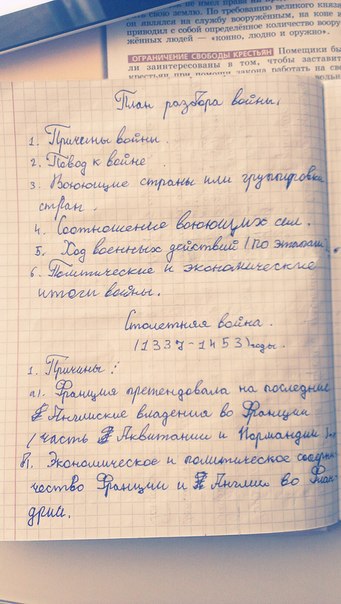 ет свою землю. По требованию великого княз
он являлся на службу вооружённым, на коне
приводил с собой определённое количество воору
жённых людей — «конно, людно и оружно».
ОГРАНИЧЕНИЕ СВОБОДЫ КРЕСТЬЯН Помещики бы
ли заинтересованы в том, чтобы заставит
крестьян при помощи закона работать на сво
План разбора войны.
1. Причины войны.
2. Повод к войне.
3. Воюющие страны или группировки
стран.
4. Соотношение воюющих сил.
5. Ход военных действий (по этапам)
6. Политические и экономические
итоги войны.
Столетняя война.
(1337-1453)годы.
1. Причины:
а). Франция претендовала на последние
Английские владения во Франции
(часть Аквитании и Нормандии)
б). Экономическое и политическое сопер-
ничество Франции и Англии во Флан-
дрии.